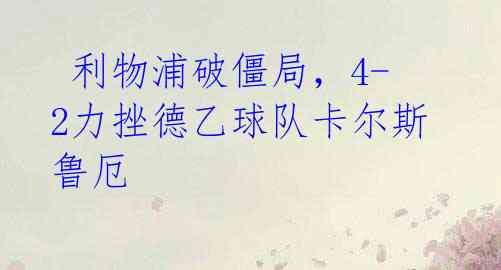 利物浦破僵局，4-
2力挫德乙球队卡尔斯
鲁厄